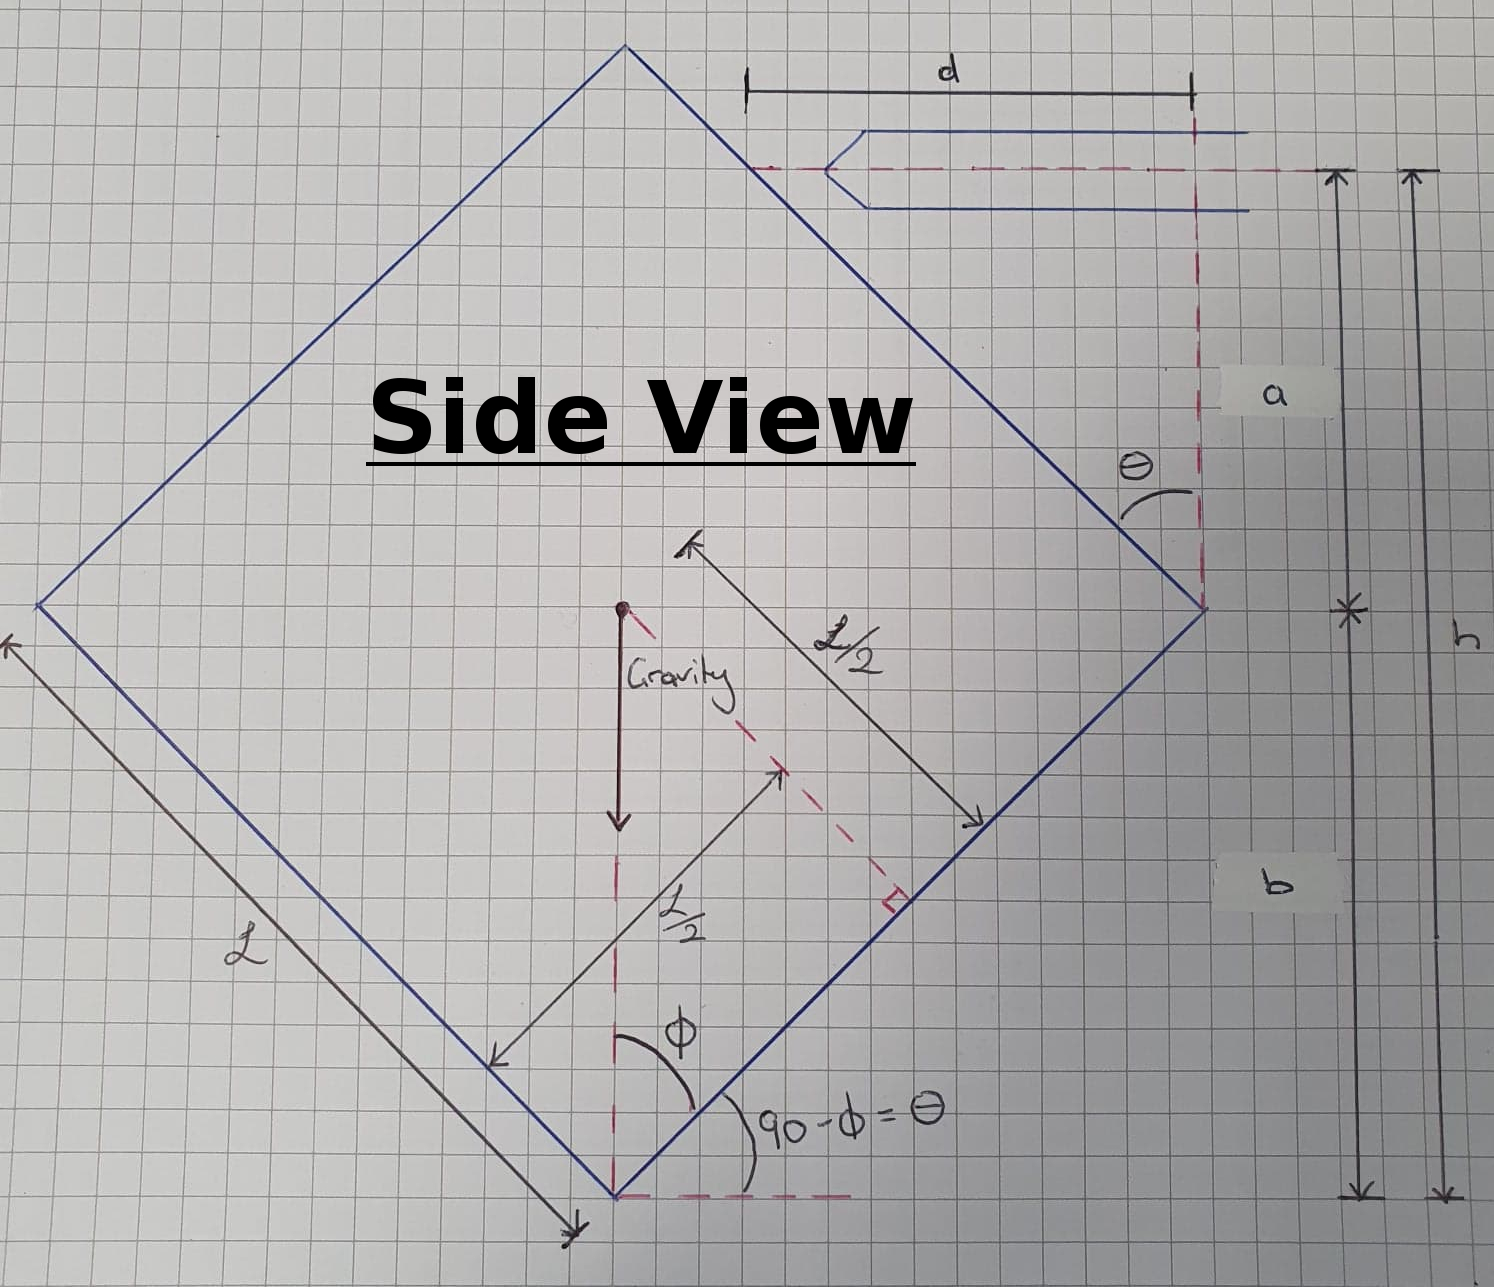 d
Side View
a
θ
L/2
h
Gravity
b
L/2
L
ϕ
90-ϕ=θ